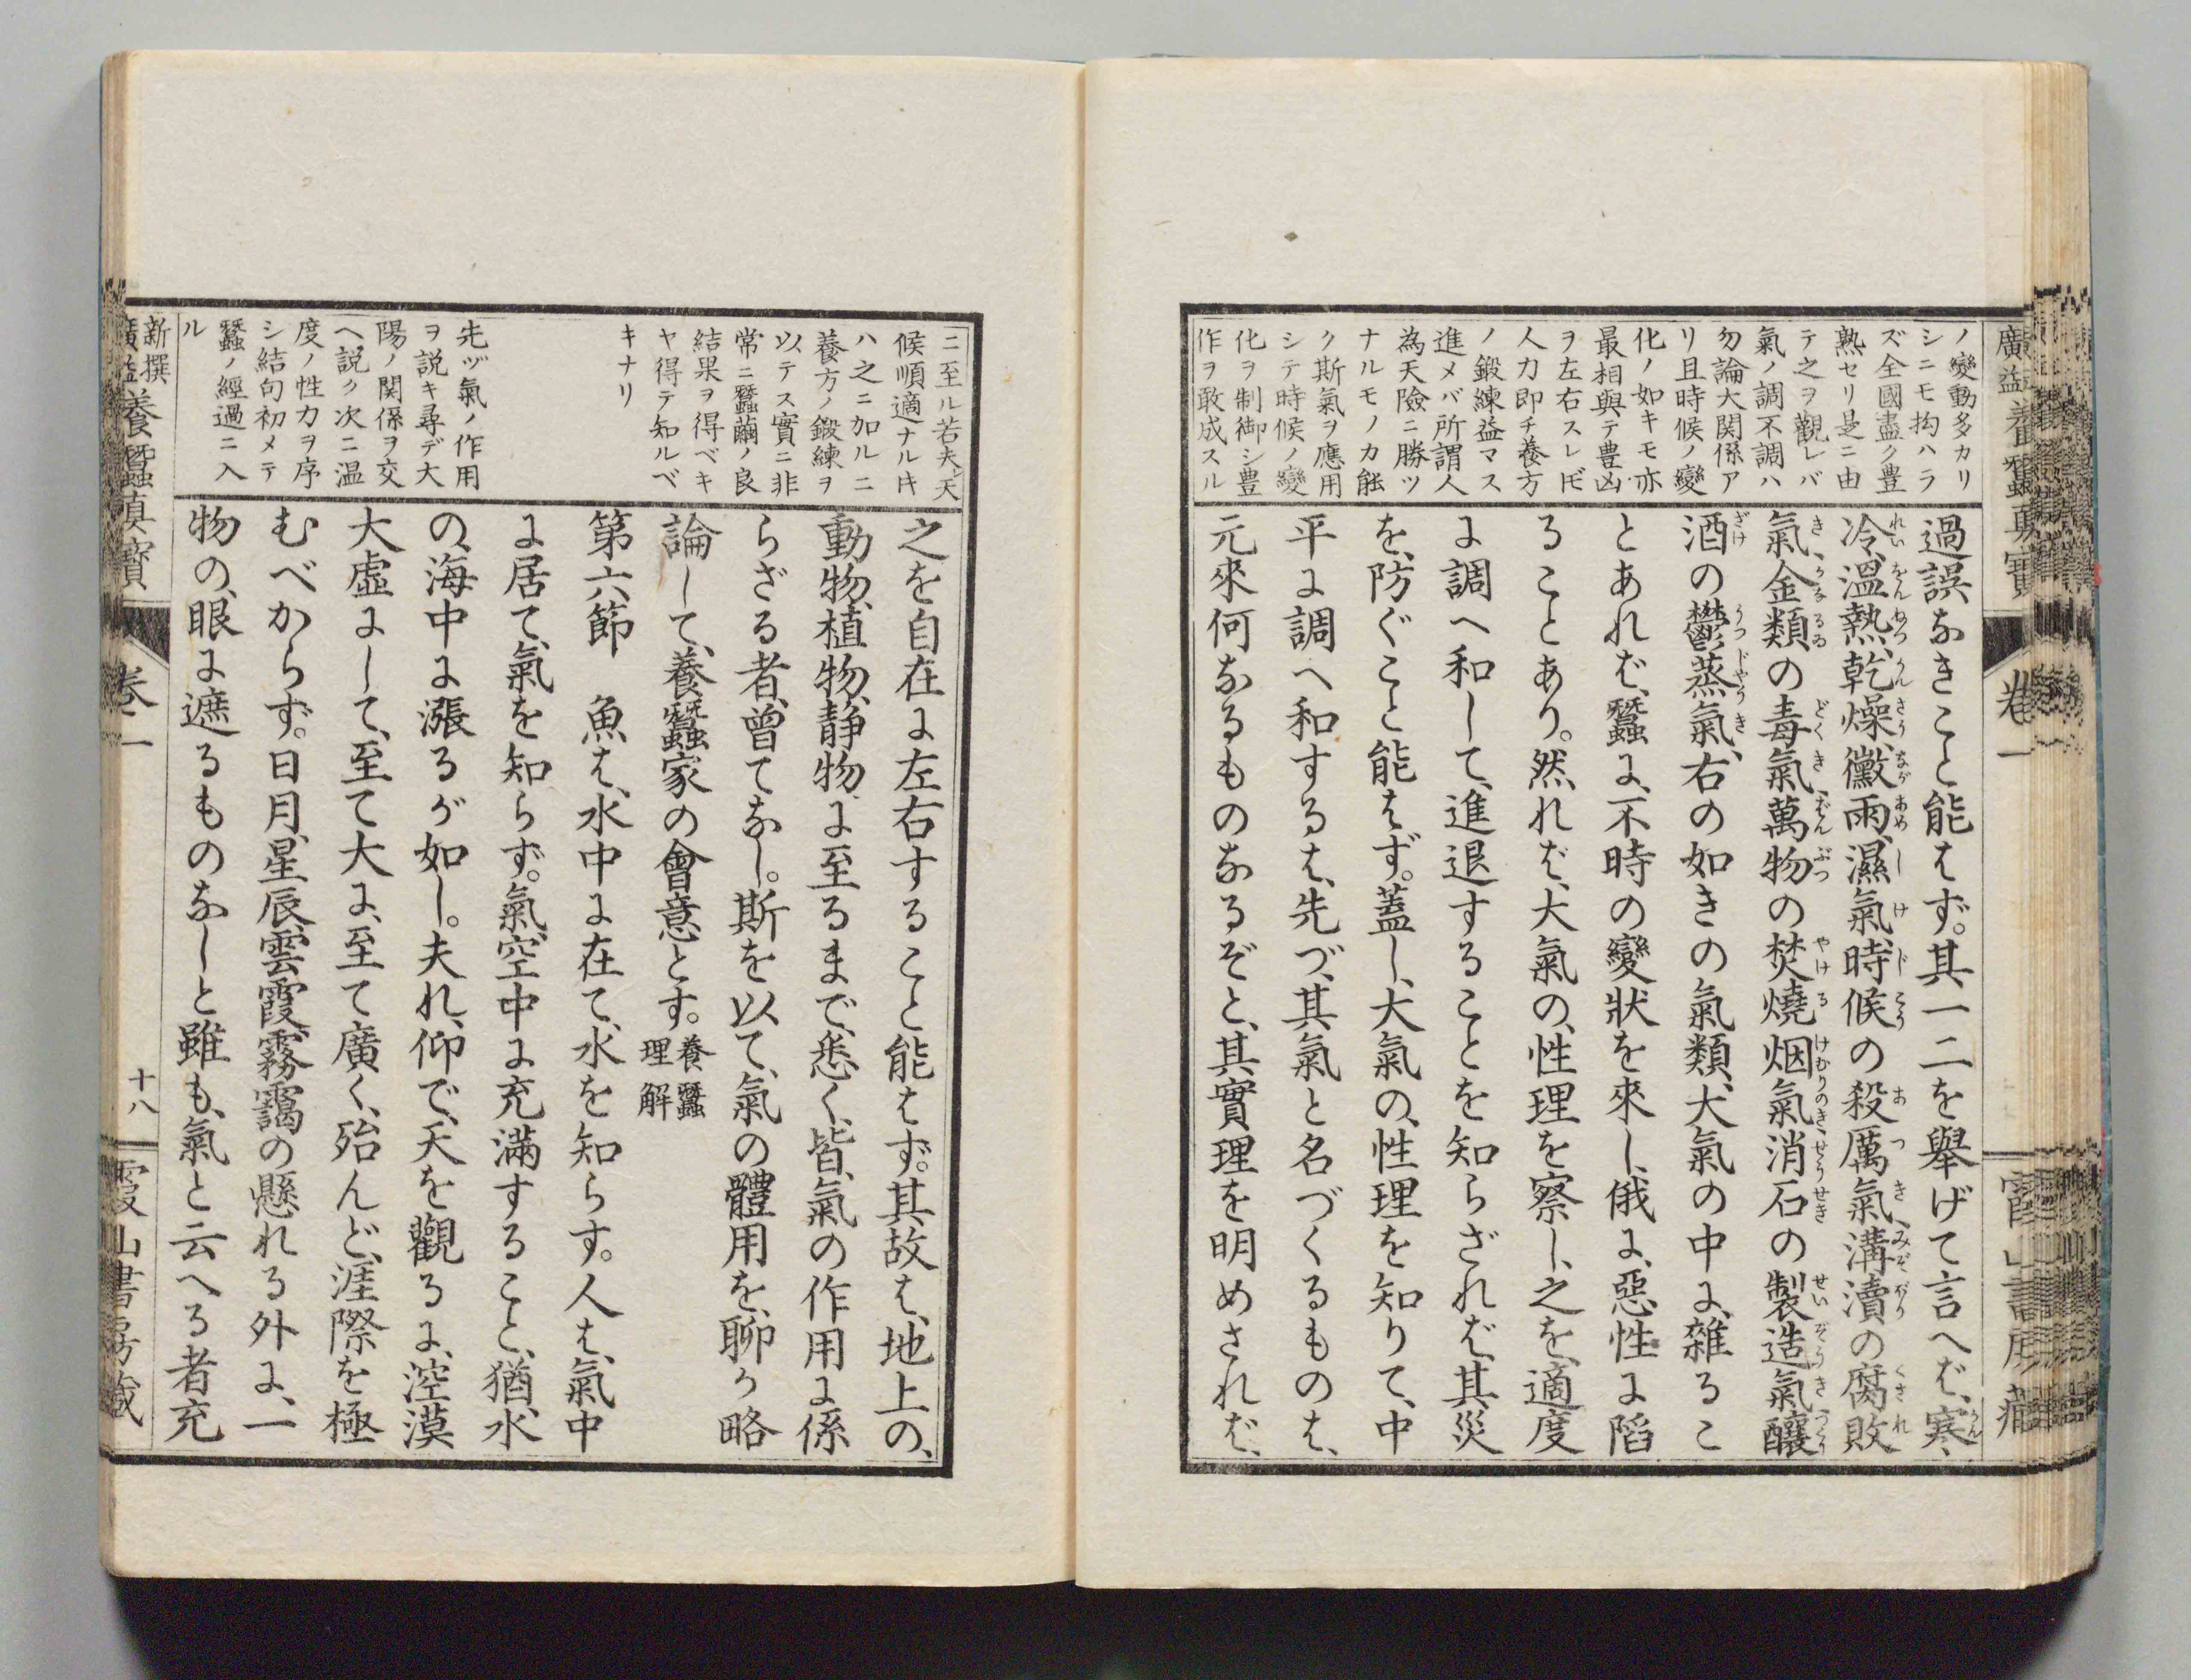 廣益養蠶眞寶 卷一 霞山書房藏
ノ變動多カリ
シニモ拘ハラ
ズ全國盡ク豊
熟セリ是ニ由
テ之ヲ觀レバ
氣ノ調不調ハ
勿論大関係ア
リ且時候ノ變
化ノ如キモ亦
最相與テ豊凶
ヲ左右スレ𪜈
人力即チ養方
ノ鍛練益マス
進メバ所謂人
為天險ニ勝ツ
ナルモノカ能
ク斯氣ヲ應用
シテ時候ノ變
化ヲ制御シ豊
作ヲ敢成スル
過誤なきこと能はず。其一二を擧げて言へば、寒、
冷、溫、熱、乾、燥、黴雨、濕氣、時候の殺厲氣、溝瀆の腐敗
氣、金類の毒氣、萬物の焚燒烟氣、消石の製造氣、釀
酒の鬱蒸氣、右の如きの氣類、大氣の中に、雜るこ
とあれば、蠶に、不時の變狀を來し、俄に、惡性に陷
ることあり。然れば、大氣の、性理を察し、之を、適度
に調へ和して、進退することを知らざれば、其災
を、防ぐこと能はず。蓋し、大氣の、性理を知りて、中
平に調へ和するは、先づ、其氣と名づくるものは、
元來何なるものなるぞと、其實理を明めされば、
ニ至ル若夫レ天
候順適ナルトキ
ハ之ニ加ルニ
養方ノ鍛練ヲ
以テス實ニ非
常ニ蠶繭ノ良
結果ヲ得ベキ
ヤ得テ知ルベ
キナリ
先ヅ氣ノ作用
ヲ説キ尋デ大
陽ノ関係ヲ交
ヘ説ク次ニ温
度ノ性力ヲ序
シ結句初メテ
蠶ノ經過ニ入
ル
之を自在に左右すること能はず。其故は、地上の、
動物、植物、静物、に至るまで、悉く、皆、氣の作用に係
らざる者、曾てなし。斯を以て、氣の體用を、聊か略
論して、養蠶家の會意とす。養蠶理解
第六節　魚は、水中に在て、水を知らす。人は、氣中
に居て、氣を知らず。氣、空中に充滿すること、猶、水
の、海中に漲るが如し。夫れ、仰で、天を觀るに、涳漠
大虛にして、至て大に、至て廣く、殆んど、涯際を極
むべからず。日月、星辰、雲霞、霧靄の懸れる外に、一
物の、眼に遮るものなしと雖も、氣と云へる者充
新撰廣益養蠶眞寶 卷一 十八 霞山書房藏